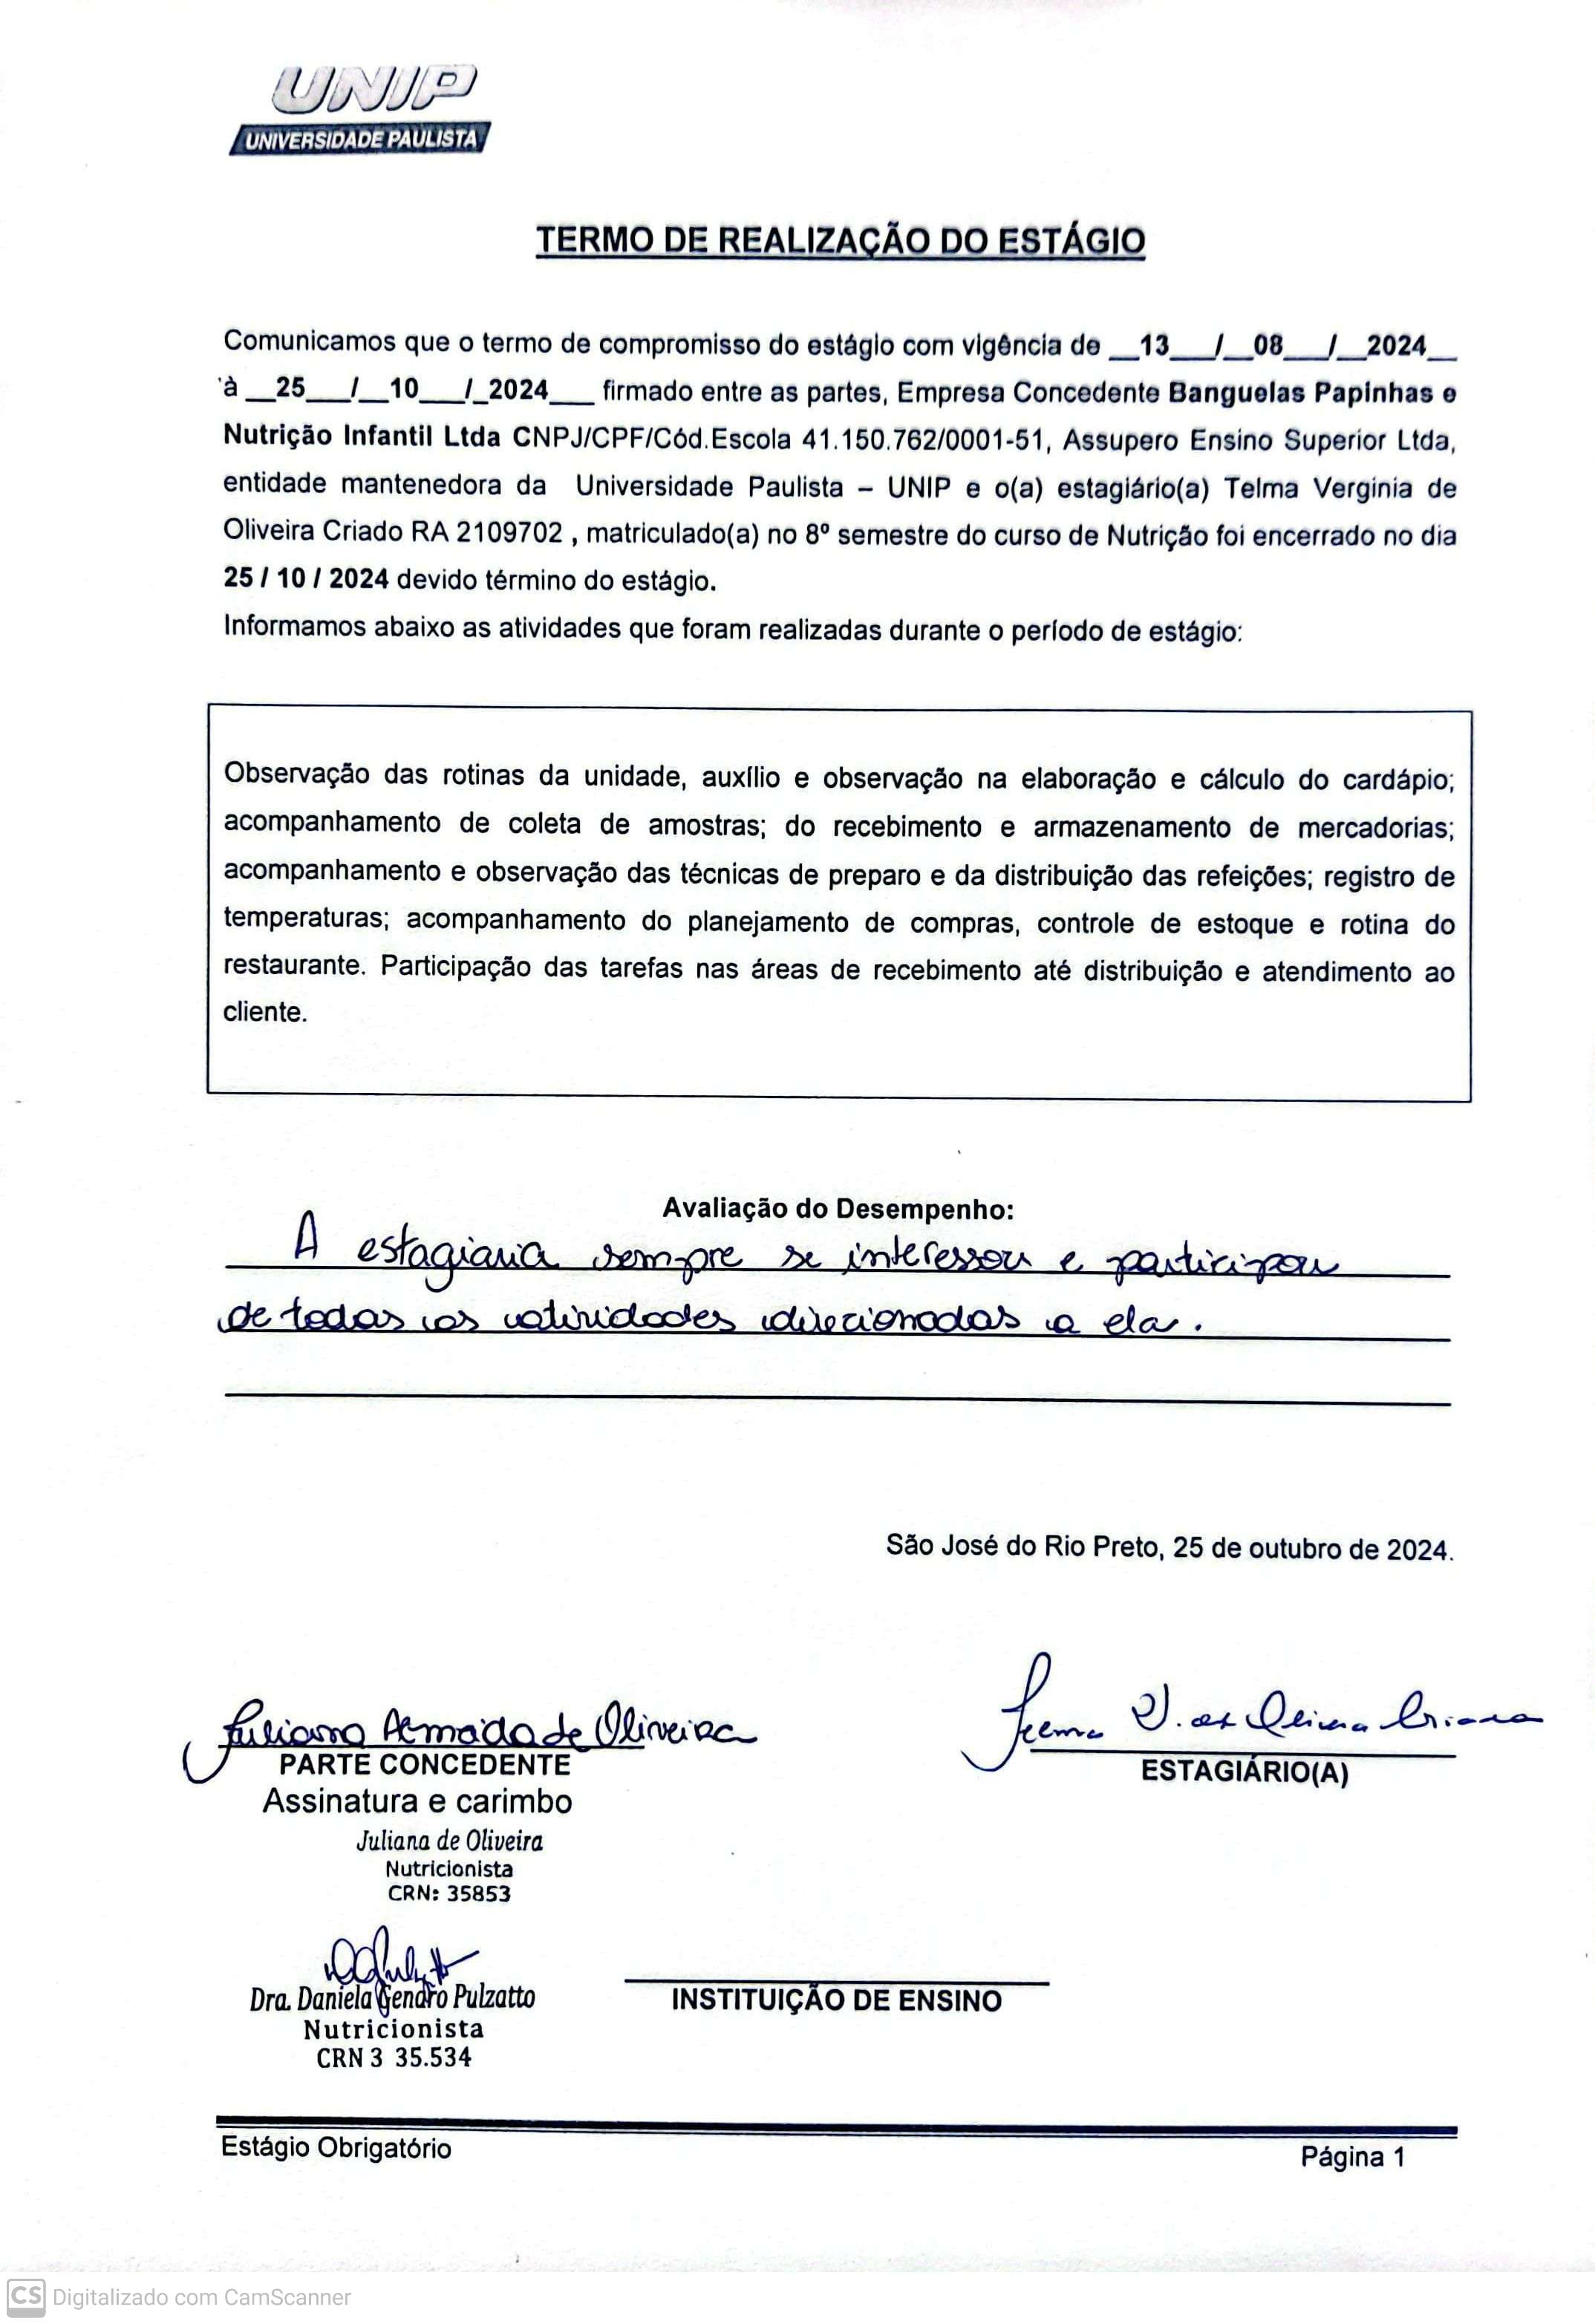 UNIP
UNIVERSIDADE PAULISTA
TERMO DE REALIZAÇÃO DO ESTÁGIO
Comunicamos que o termo de compromisso do estágio com vigência de __13___/__08___/__2024__
à __25___/__10___/_2024___ firmado entre as partes, Empresa Concedente Banguelas Papinhas e
Nutrição Infantil Ltda CNPJ/CPF/Cód.Escola 41.150.762/0001-51, Assupero Ensino Superior Ltda,
entidade mantenedora da Universidade Paulista – UNIP e o(a) estagiário(a) Telma Verginia de
Oliveira Criado RA 2109702 , matriculado(a) no 8º semestre do curso de Nutrição foi encerrado no dia
25 / 10 / 2024 devido término do estágio.
Informamos abaixo as atividades que foram realizadas durante o período de estágio:
Observação das rotinas da unidade, auxílio e observação na elaboração e cálculo do cardápio;
acompanhamento de coleta de amostras; do recebimento e armazenamento de mercadorias;
acompanhamento e observação das técnicas de preparo e da distribuição das refeições; registro de
temperaturas; acompanhamento do planejamento de compras, controle de estoque e rotina do
restaurante. Participação das tarefas nas áreas de recebimento até distribuição e atendimento ao
cliente.
Avaliação do Desempenho:
A estagiaria sempre se interessou e participou
de todas as atividades direcionadas a ela.
São José do Rio Preto, 25 de outubro de 2024.
Juliana Almada de Oliveira
PARTE CONCEDENTE
Assinatura e carimbo
Juliana de Oliveira
Nutricionista
CRN: 35853
Telma V. de Oliveira Criado
ESTAGIÁRIO(A)
Dra. Daniela Gendro Pulzatto
Nutricionista
CRN 3 35.534
INSTITUIÇÃO DE ENSINO
Estágio Obrigatório
Página 1
CS Digitalizado com CamScanner